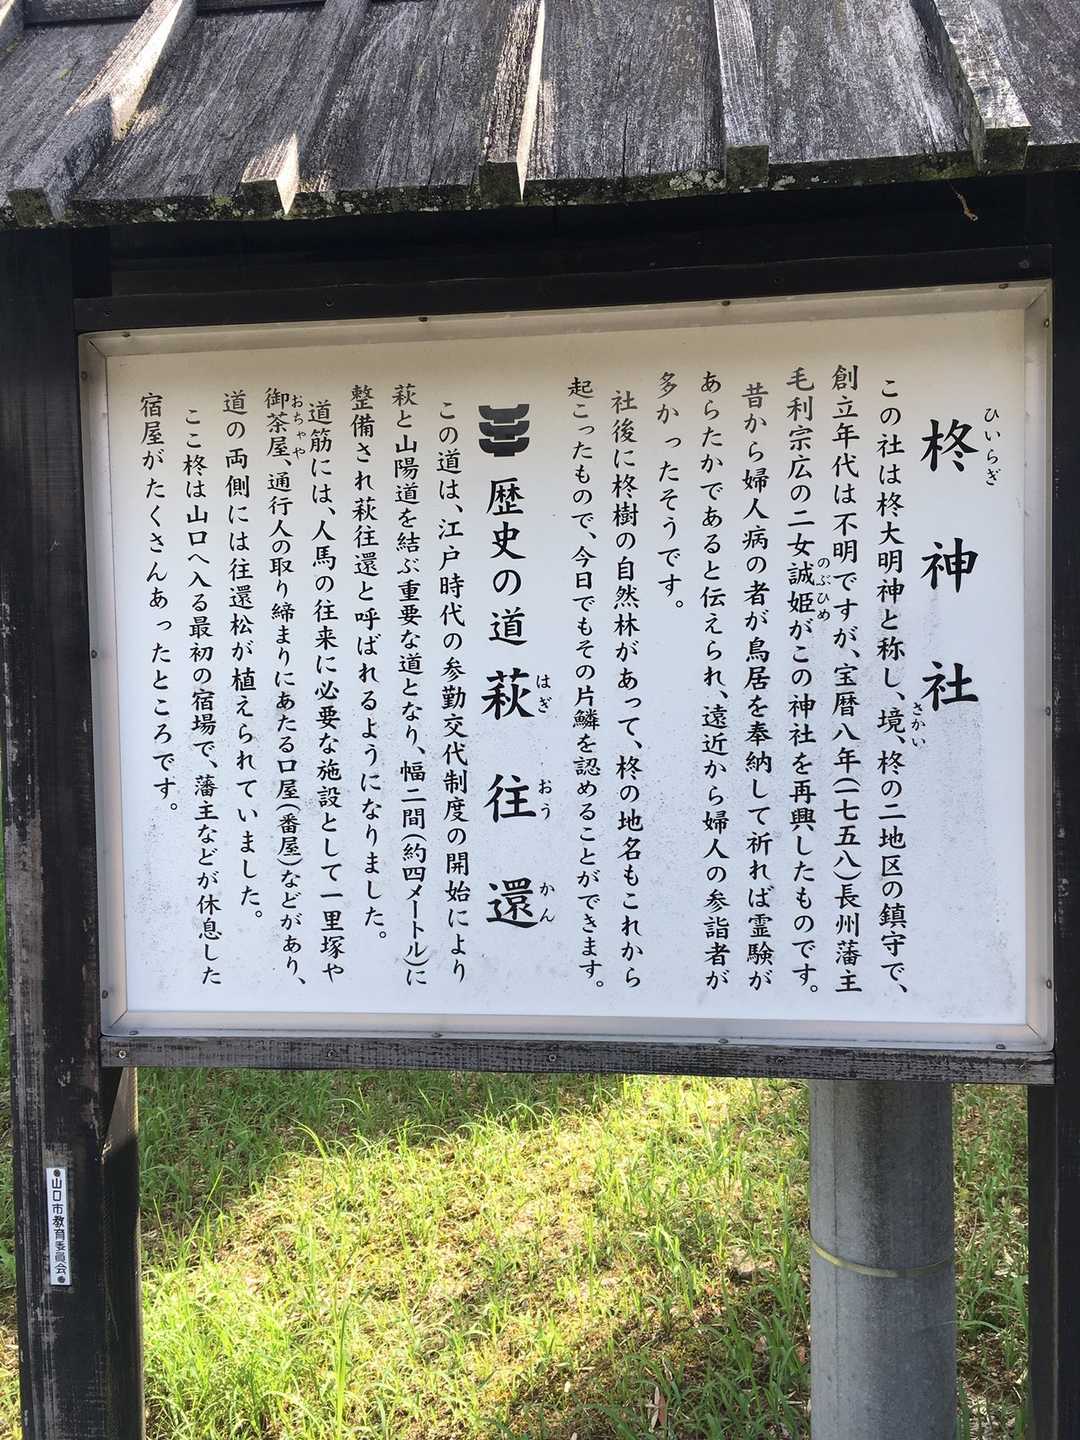 柊神社
ひいらぎ
この社は柊大明神と称し、境、柊の二地区の鎮守で、
さかい
創立年代は不明ですが、宝暦八年(一七五八)長州藩主
毛利宗広の二女誠姫がこの神社を再興したものです。
のぶひめ
昔から婦人病の者が鳥居を奉納して祈れば霊験が
あらたかであると伝えられ、遠近から婦人の参詣者が
多かったそうです。
社後に柊樹の自然林があって、柊の地名もこれから
起こったもので、今日でもその片鱗を認めることができます。
歴史の道 萩往還
はぎ おう かん
この道は、江戸時代の参勤交代制度の開始により
萩と山陽道を結ぶ重要な道となり、幅二間(約四メートル)に
整備され萩往還と呼ばれるようになりました。
道筋には、人馬の往来に必要な施設として一里塚や
御茶屋、通行人の取り締まりにあたる口屋(番屋)などがあり、
おちゃや
道の両側には往還松が植えられていました。
ここ柊は山口へ入る最初の宿場で、藩主などが休息した
宿屋がたくさんあったところです。
山口市教育委員会